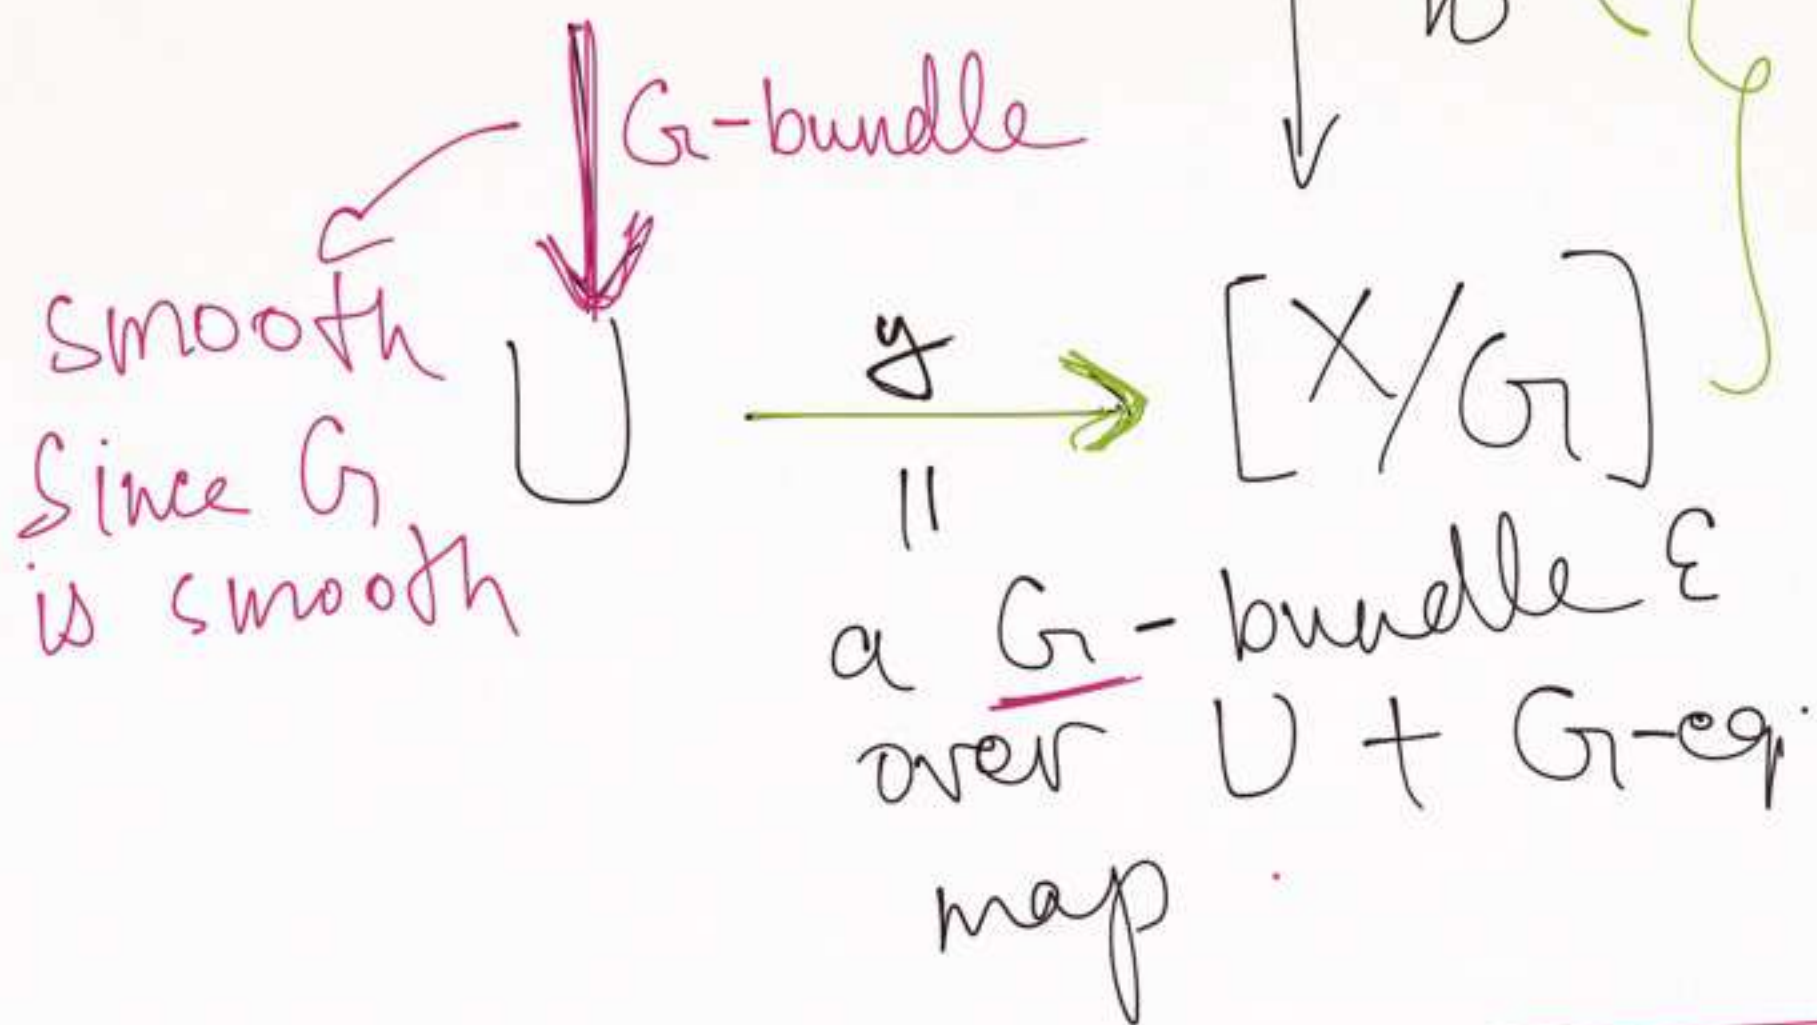 G-bundle
smooth
since G
is smooth
U
y
[X/G]
||
a G-bundle ε
over U + G-eq.
map